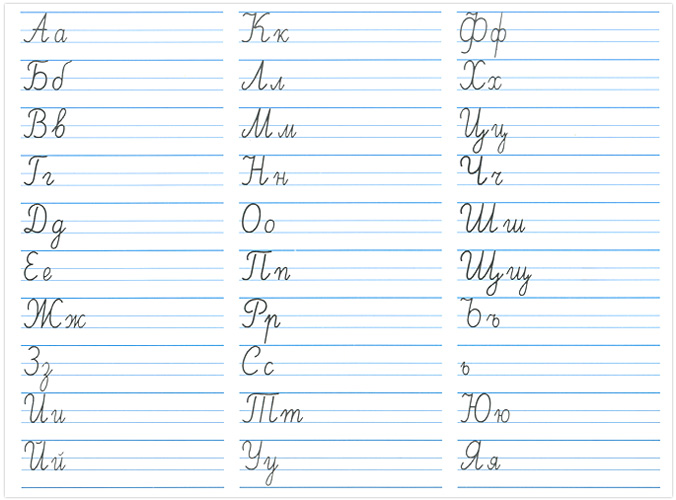 Аа
Бб
Вв
Гг
Дд
Ее
Жж
Зз
Ии
Йй
Кк
Лл
Мм
Нн
Оо
Пп
Рр
Сс
Тт
Уу
Фф
Хх
Цц
Чч
Шш
Щщ
Ъъ
ь
Юю
Яя